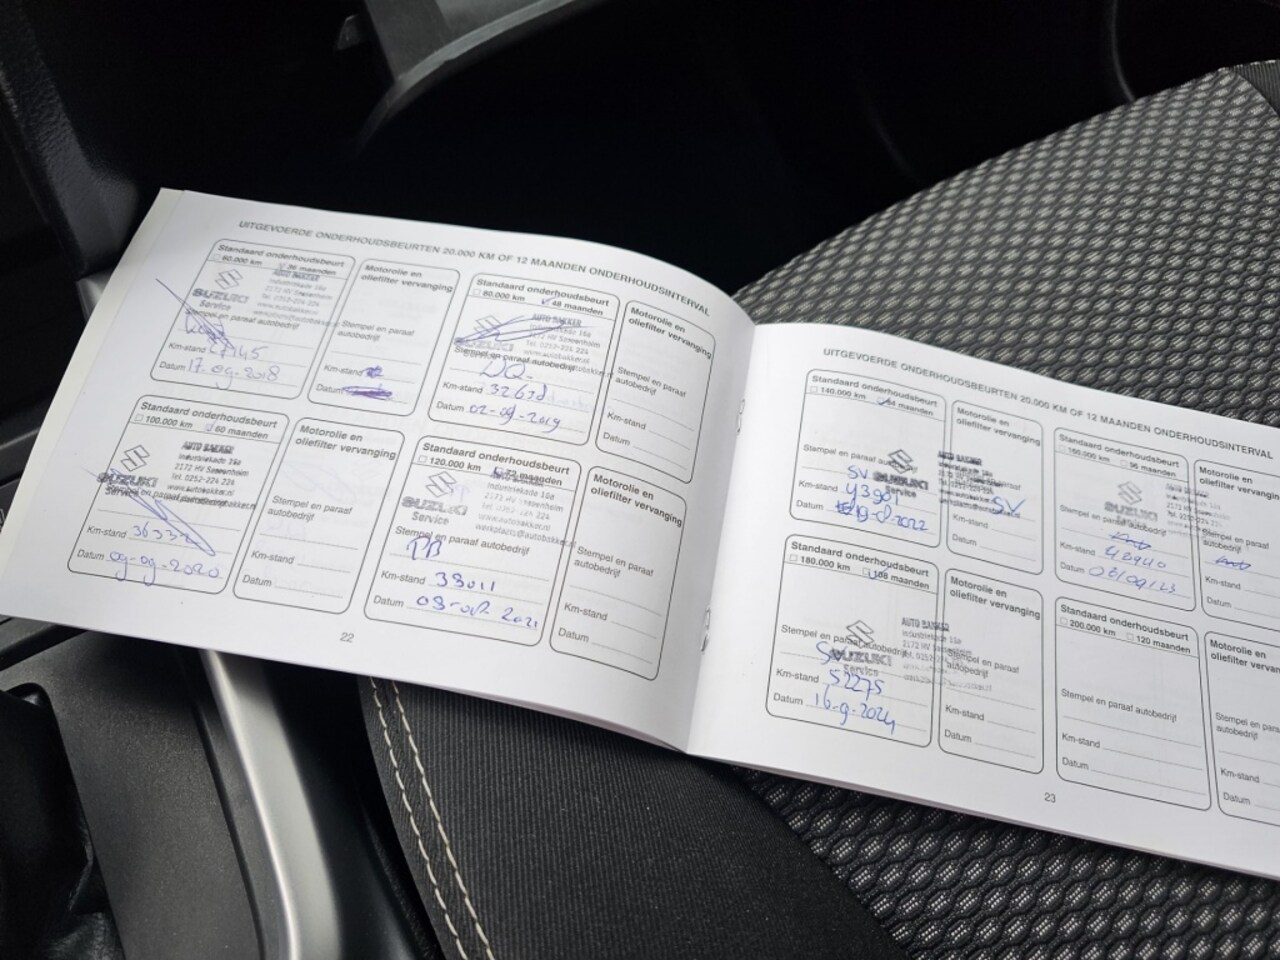 UITGEVOERDE ONDERHOUDSBEURTEN 20.000 KM OF 12 MAANDEN ONDERHOUDSINTERVAL
Standaard onderhoudsbeurt
60.000 km 36 maanden
AUTO BAKKER
Industriekade 16a
2172 HV Sassenheim
Tel. 0252-224 224
www.autobakker.nl
SUZUKI
Service
Stempel en paraaf autobedrijf
Km-stand
Datum 17-09-2018
Motorolie en
oliefilter vervanging
Stempel en paraaf
autobedrijf
Km-stand
Datum
Standaard onderhoudsbeurt
80.000 km 48 maanden
AUTO BAKKER
Industriekade 16a
2172 HV Sassenheim
Tel. 0252-224 224
www.autobakker.nl
Stempel en paraaf autobedrijf
Km-stand
Datum 02-09-2019
Motorolie en
oliefilter vervanging
Stempel en paraaf
autobedrijf
Km-stand
Datum
Standaard onderhoudsbeurt
100.000 km 60 maanden
AUTO BAKKER
Industriekade 16a
2172 HV Sassenheim
Tel. 0252-224 224
www.autobakker.nl
SUZUKI
Service
Stempel en paraaf autobedrijf
Km-stand
Datum 09-09-2020
Motorolie en
oliefilter vervanging
Stempel en paraaf
autobedrijf
Km-stand
Datum
Standaard onderhoudsbeurt
120.000 km 72 maanden
Industriekade 16a
2172 HV Sassenheim
Tel. 0252-224 224
www.autobakker.nl
werkplaats@autobakker.nl
SUZUKI
Service
Stempel en paraaf autobedrijf
Km-stand 38011
Datum
Motorolie en
oliefilter vervanging
Stempel en paraaf
autobedrijf
Km-stand
Datum
22
UITGEVOERDE ONDERHOUDSBEURTEN 20.000 KM OF 12 MAANDEN ONDERHOUDSINTERVAL
Standaard onderhoudsbeurt
140.000 km 84 maanden
Stempel en paraaf autobedrijf
SV
SUZUKI
Service
Km-stand
Datum
Motorolie en
oliefilter vervanging
SV
Km-stand
Datum
Standaard onderhoudsbeurt
160.000 km 96 maanden
SUZUKI
Stempel en paraaf autobedrijf
Km-stand 48940
Datum 03/09/23
Motorolie en
oliefilter vervanging
Stempel en paraaf
autobedrijf
Km-stand
Datum
Standaard onderhoudsbeurt
180.000 km 108 maanden
AUTO BAKKER
Industriekade 16a
2172 HV Sassenheim
Stempel en paraaf autobedrijf
SV
SUZUKI
Service
Km-stand 52275
Datum 16-9-2024
Motorolie en
oliefilter vervanging
Km-stand
Datum
Standaard onderhoudsbeurt
200.000 km 120 maanden
Stempel en paraaf autobedrijf
Km-stand
Datum
Motorolie en
oliefilter vervanging
Stempel en paraaf
autobedrijf
Km-stand
Datum
23